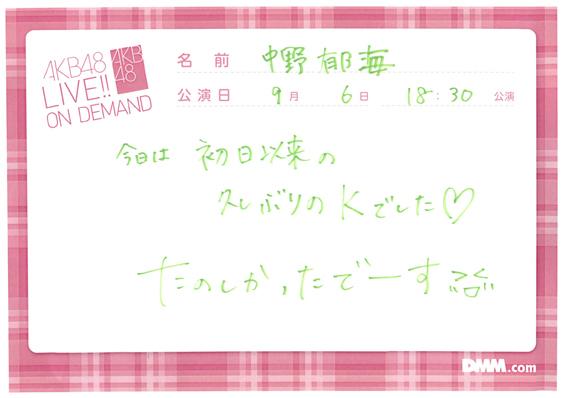 AKB48
LIVE!!
ON DEMAND
AKB
48
名前 中野郁海
公演日 9月 6日 18:30 公演
今日は 初日以来の
久しぶりのKでした♡
たのしかったでーす
DMM.com